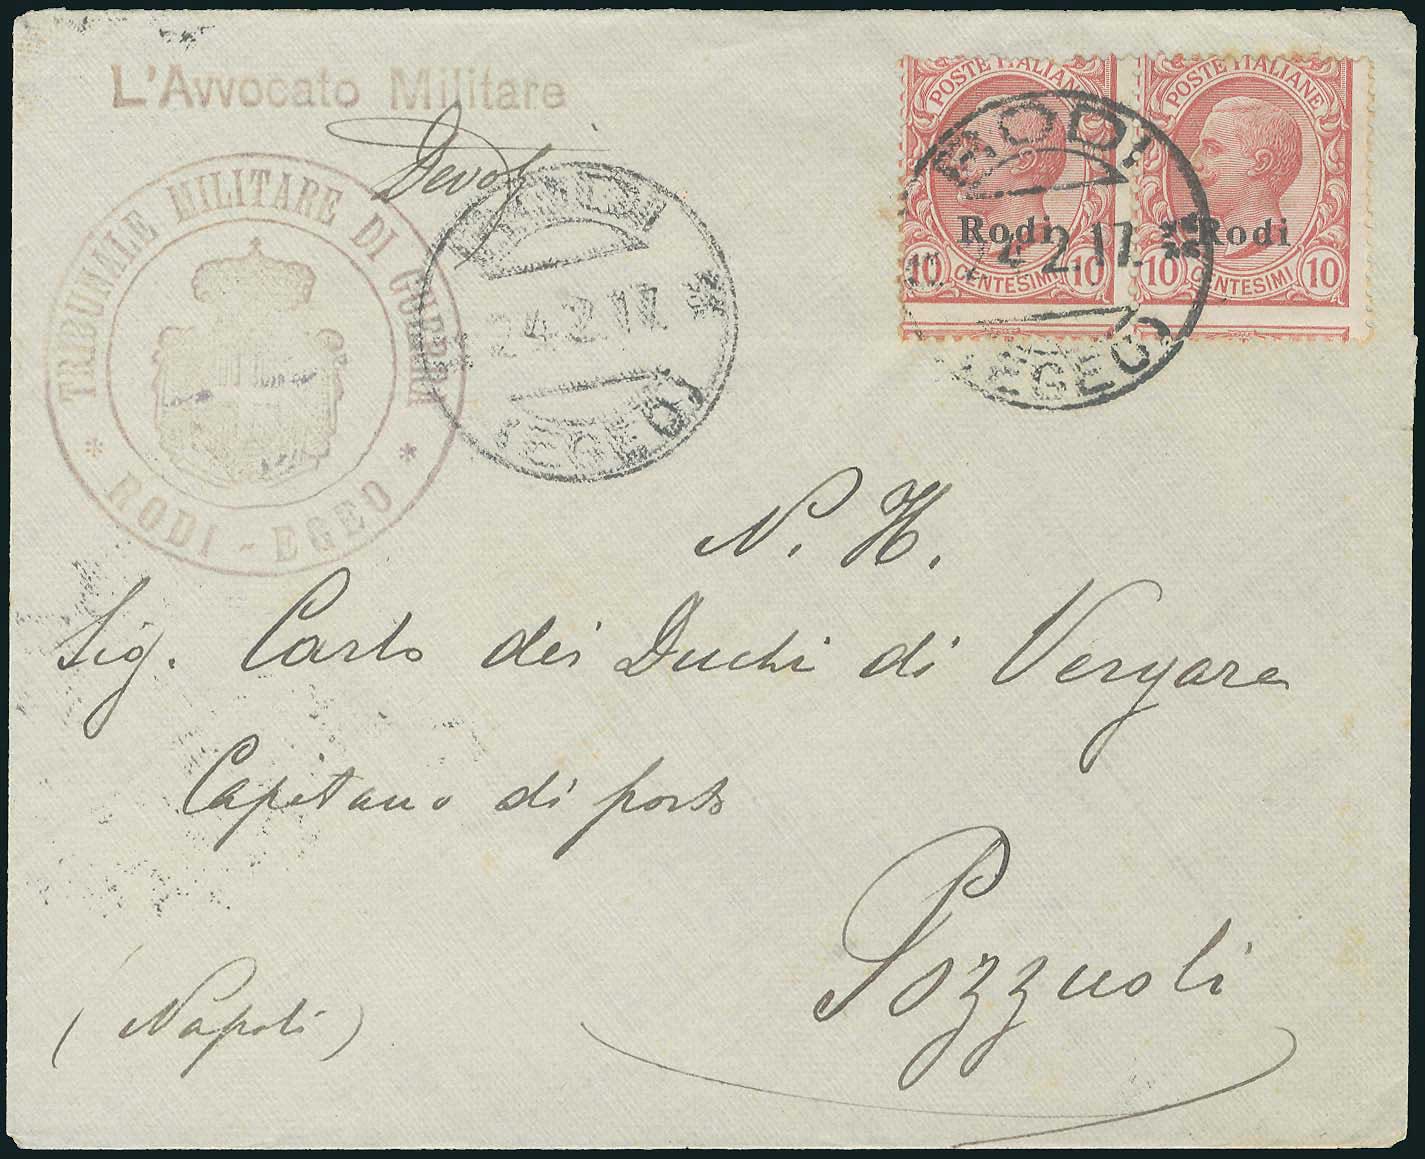 L'Avvocato Militare
TRIBUNALE MILITARE DI GUERRA
* RODI - EGEO *
24.2.17
(EGEO)
POSTE ITALIANE
Rodi
10 CENTESIMI 10
POSTE ITALIANE
Rodi
10 CENTESIMI 10
RODI
2.17
(EGEO)
N. H.
Sig. Carlo dei Duchi di Vergara
Capitano di porto
Pozzuoli
(Napoli)